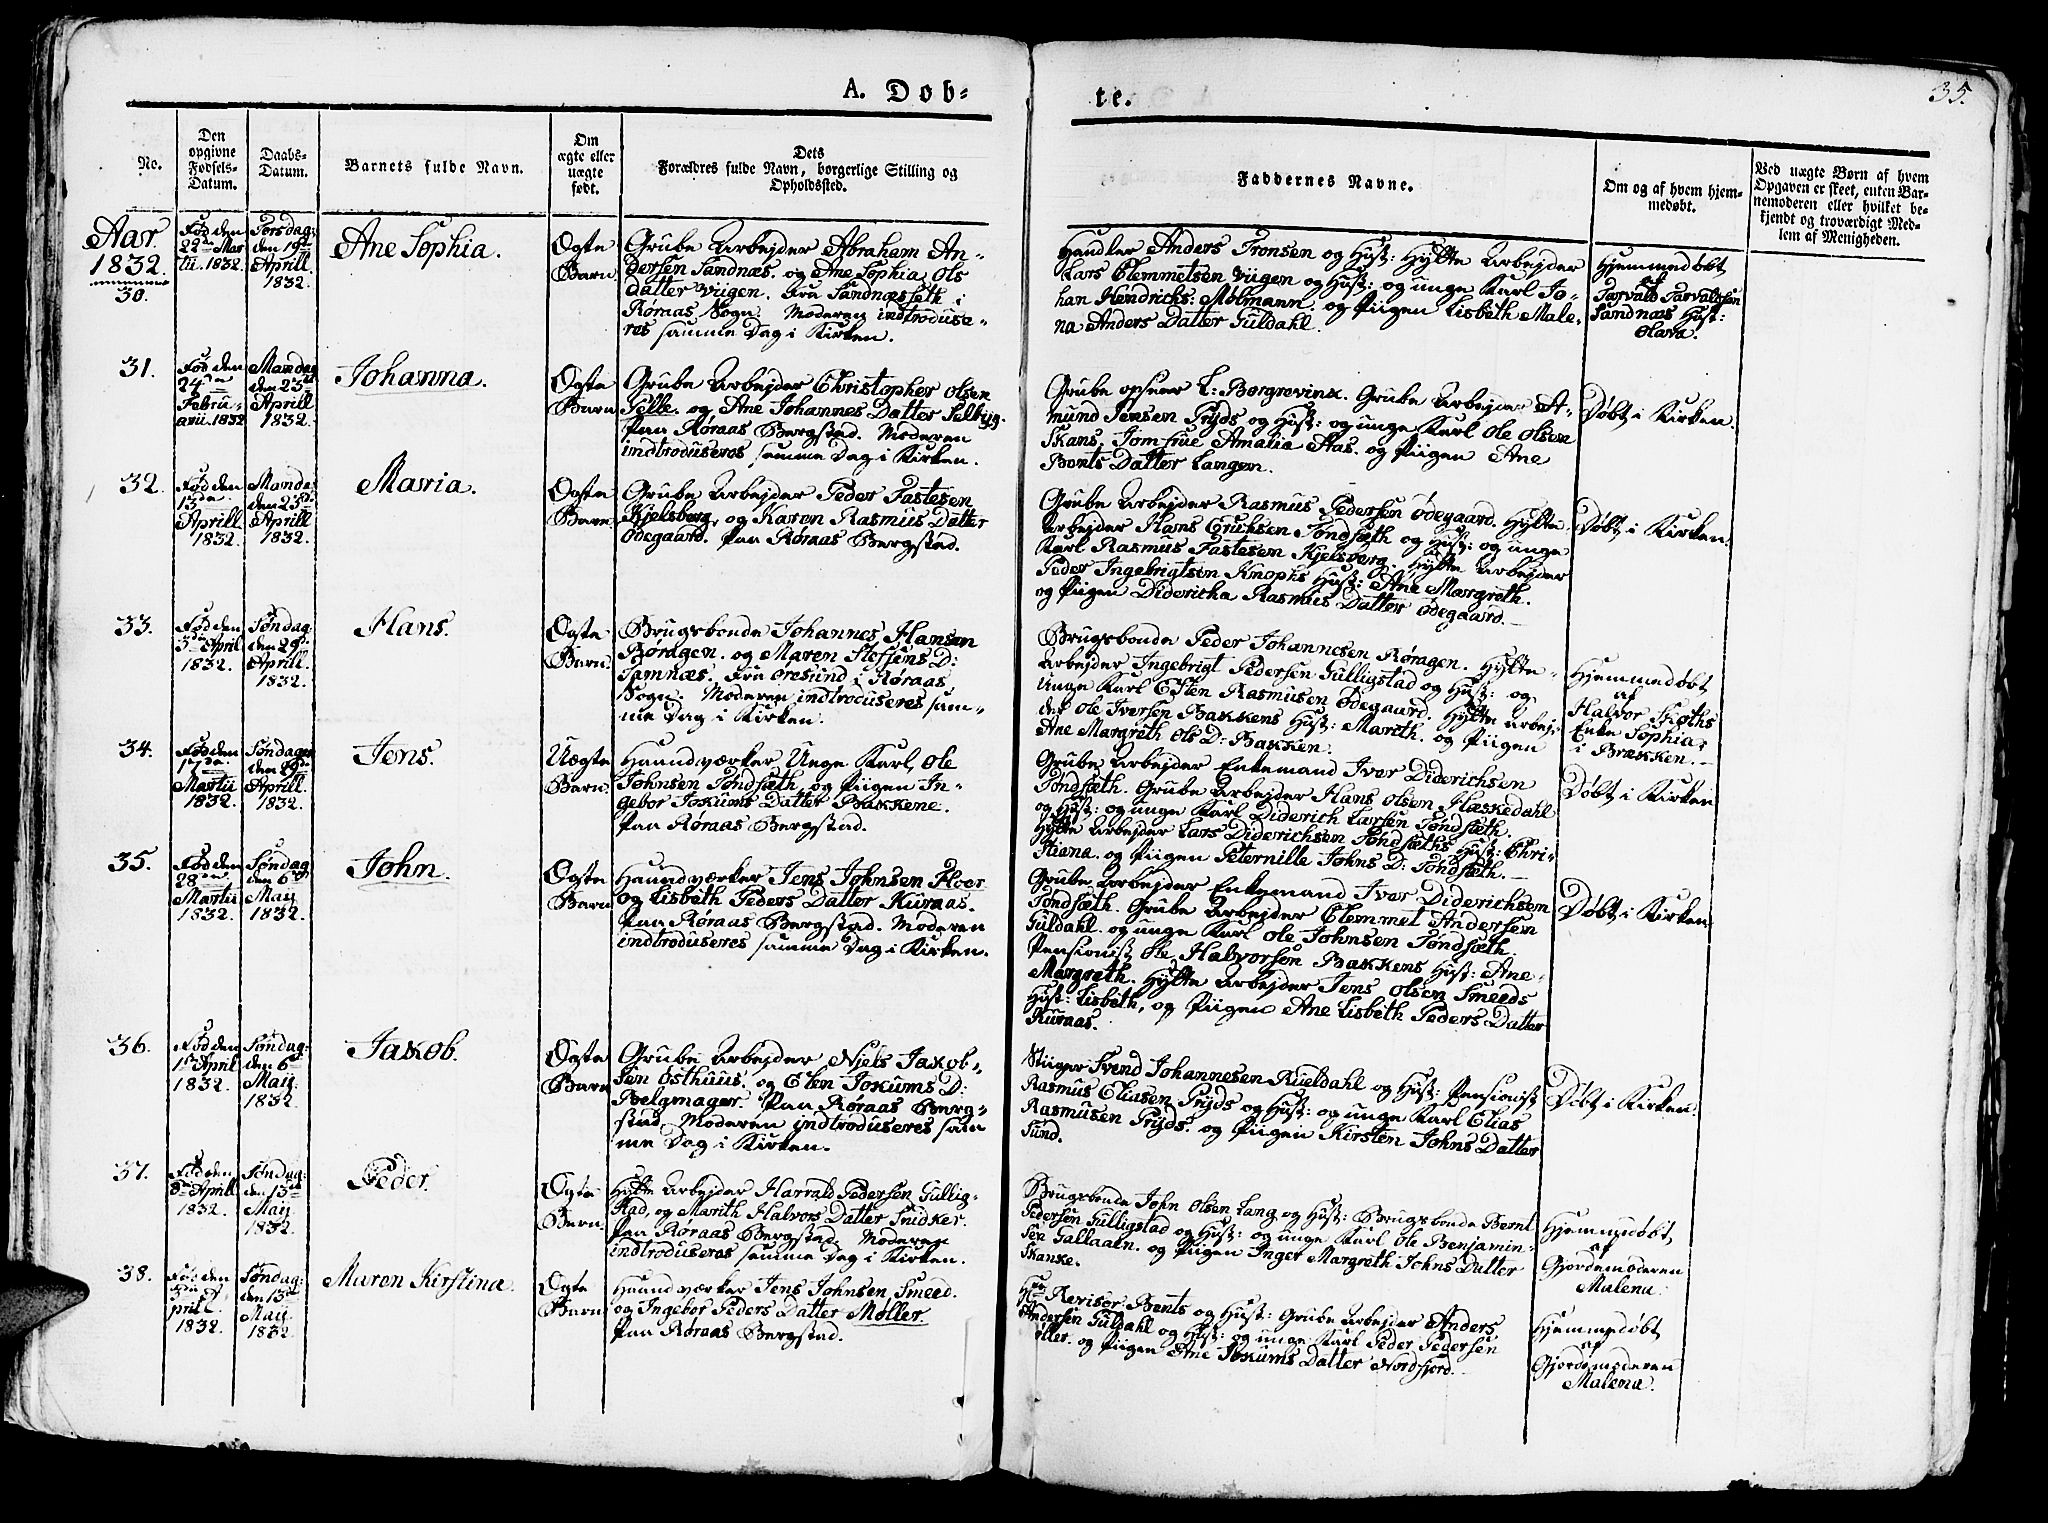 A. Døb-
te.
35.
No.
Den
opgivne
Fødsels-
Datum.
Daabs-
Datum.
Barnets fulde Navn.
Om
ægte eller
uægte
født.
Dets
Forældres fulde Navn, borgerlige Stilling og
Opholdssted.
Faddernes Navne.
Om og af hvem hjem-
medøbt.
Ved uægte Børn af hvem
Opgaven er skeet, enten Bar-
nemoderen eller hvilket be-
kjendt og troværdigt Med-
lem af Menigheden.
Aar.
1832.
30.
Fød den
22de Mar
tii. 1832.
Torsdag:
den 19de
Aprill
1832.
Ane Sophia.
Ægte
Barn.
Grube Arbejder Abraham An-
dersen Sandnæs. og Ane Sophia, Ols
Datter Viigen. Fra Sandnæsseth i
Røraas Sogn. Moderen indtroduse-
res samme Dag i Kirken.
Handler Anders Tronsen og Hust: Hytte Arbejder
Lars Clemmetsen Viigen og Hust: og unge Karl Jo-
han Hendrichs: Mølmann og Piigen Lisbeth Male-
na Anders Datter Guldahl.
Hjemmedøbt
af
Torvald Torvaldsen
Sandnæs Hust:
Olava.
31.
Fød den
24de
Febru-
arii. 1832
Mandag
den 23de
Aprill
1832.
Johanna.
Ægte
Barn
Grube Arbejder Christopher Olsen
Selle. og Ane Johannes Datter Selbyg.
Paa Røraas Bergstad. Moderen
indtroduseres samme Dag i Kirken.
Grube opseer L: Borgrevink. Grube Arbejder A-
mund Jensen Pryds og Hust: og unge Karl Ole Olsen
Skans. Jomfrue Amalia Aas. og Piigen Ane
Bents Datter Langen.
Døbt i Kirken.
32.
Fød den
13de
Aprill.
1832.
Mandag
den 23de
Aprill.
1832.
Maria.
Ægte
Barn.
Grube Arbejder Peder Fastesen
Kjelsberg, og Karen Rasmus Datter
Ødegaard. Paa Røraas Bergstad.
Grube Arbejder Rasmus Pedersen Ødegaard. Hytte-
Arbejder Hans Erichsen Tøndsæth og Hust: og unge
Karl Rasmus Fastesen Kjelsberg. Hytte Arbejder
Peder Ingebrigtsen Knophs Hust: Ane Margreth.
og Piigen Didericha Rasmus Datter Ødegaard.
Døbt i Kirken.
33.
Fød den
3de April
1832.
Søndag:
den 29de
Aprill.
1832.
Hans.
Ægte
Barn.
Brugsbonde Johannes Hansen
Røragen. og Maren Steffens D:
Tamnæs. Fra Øresund i Røraas
Sogn. Moderen indtroduseres sam-
me Dag i Kirken.
Brugsbonde Peder Johannesen Røragen. Hytte-
Arbejder Ingebrigt Pedersen Gulligstad og Hust: og
Unge Karl Esten Rasmusen Ødegaard. Hytte Arbej-
der Ole Iversen Bakkens Hust: Marith. og Piigen
Ane Margreth Ols D: Bakken.
Hjemmedøbt
af
Halvor Skotts
Enke Sophia,
i Brækken.
34.
Fød den
17de
Martii
1832.
Søndagen
den 29de
Aprill.
1832.
Jens.
Uægte
Barn.
Haandværker Unge Karl, Ole
Johnsen Tøndsæth, og Piigen In-
gebor Jokums Datter Bakkene.
Paa Røraas Bergstad.
Grube Arbejder Enkemand Iver Diderichsen
Tøndsæth. Grube Arbejder Hans Olsen Hæskedahl
og Hust: og unge Karl Diderich Larsen Tøndsæth.
Hytte Arbejder Lars Diderichsen Tøndsæths Hust: Chri-
stiana. og Piigen Peternille Johns D: Tøndsæth.
Døbt i Kirken
35.
Fød den
28de
Martii
1832.
Søndag
den 6te
Maij
1832.
John.
Ægte
Barn.
Haandværker Jens Johnsen Hoer
og Lisbeth Peders Datter Kuraas.
Paa Røraas Bergstad. Moderen
indtroduseres samme Dag i Kirken.
Grube Arbejder Enkemand Iver Diderichsen
Tøndsæth. Grube Arbejder Clemmet Andersen
Guldahl. og unge Karl Ole Johnsen Tøndsæth.
Pensionist Ole Halvorsen Bakkens Hust: Ane
Margreth. Hytte Arbejder Jens Olsen Smeeds
Hust: Lisbeth, og Piigen Ane Lisbeth Peders Datter
Kuraas.
Døbt i Kirken.
36.
Fød den
1ste April
1832.
Søndag:
den 6te
Maij
1832.
Jakob.
Ægte
Barn
Grube Arbejder Niels Jakob-
sen Østhuus. og Elen Jokums D:
Belgmager. Paa Røraas Berg-
stad. Moderen indtroduseres sam
me Dag i Kirken.
Stiiger Svend Johannesen Rueldahl og Hust: Pensionist
Rasmus Eliasen Pryds og Hust: og unge Karl Elias
Rasmusen Pryds. og Piigen Kirsten Johns Datter
Sund.
Døbt i Kirken.
37.
Fød den
8de April
1832.
Søndag:
den 13de
Maij
1832.
Peder.
Ægte
Barn
Hytte Arbejder Harrald Pedersen Gullig-
stad, og Marith Halvors Datter Snidker.
Paa Røraas Bergstad. Moderen
indtroduseres samme Dag i Kirken.
Brugsbonde John Olsen Lang og Hust: Brugsbonde Bernt
Pedersen Gulligstad og Hust: og unge Karl Ole Benjamin-
sen Gallaaen. og Piigen Inger Margreth Johns Datter
Skanke.
Hjemmedøbt
af
Gjordemoderen
Malena.
38.
Fød den
3de A
prill.
1832.
Søndag:
den 13de
Maij
1832.
Maren Kirstina
Ægte
Barn
Haandværker Jens Johnsen Smeed.
og Ingebor Peders Datter Møller.
Paa Røraas Bergstad.
Hr Revisor Bents og Hust: Grube Arbejder Anders
Andersen Guldahl og Hust: og unge Karl Peder Pedersen
øller. og Piigen Ane Jokums Datter Nordfjord.
Hjemmedøbt
af
Gjordemoderen
Malena.